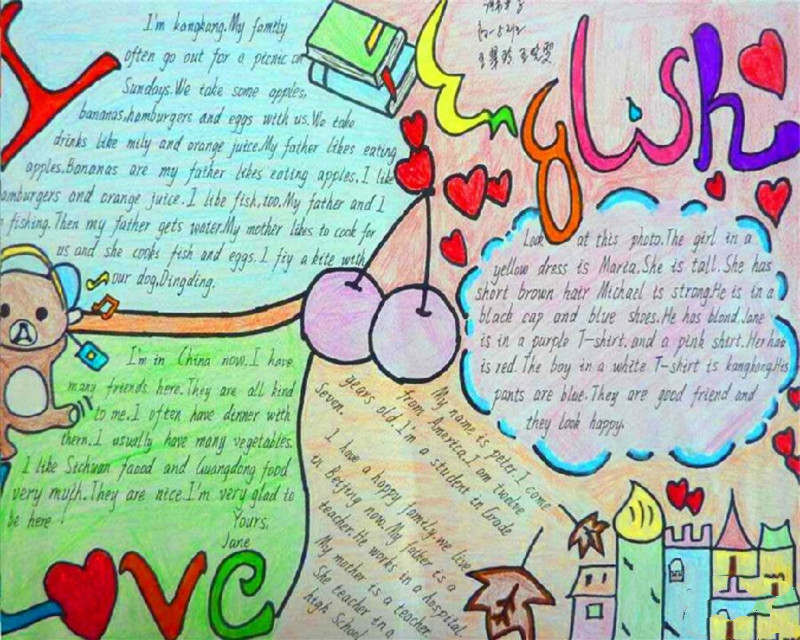 English
I'm kangkang.My family
often go out for a picnic on
Sundays.We take some apples,
bananas,hamburgers and eggs with us.We take
drinks like mily and orange juice.My father likes eating
apples.Bananas are my father likes eating apples.I like
hamburgers and orange juice.I like fish,too.My father and I
fishing.Then my father gets water.My mother likes to cook for
us and she cooks fish and eggs.I fiy a kite with
our dog,Dingding.
Look at this photo.The girl in a
yellow dress is Maria.She is tall.She has
short brown hair Michael is strong.He is in a
black cap and blue shoes.He has blond.Jane
is in a purple T-shirt.and a pink shirt.Her hair
is red.The boy in a white T-shirt is kangkong.His
pants are blue.They are good friend and
they look happy.
I'm in China now.I have
many friends here.They are all kind
to me.I often have dinner with
them.I usually have many vegetables.
I like Sichuan faood and Guangdong food
very myth.They are nice.I'm very glad to
be here!
Yours,
Jane
My name is peter.I come
from America.I am twelve
years old.I'm a student in Grade
Seven.
I have a happy family.we live
in Beijing now.My father is a
teacher.He works in a hospital.
My mother is a teacher.
She teacher in a
high School
ove